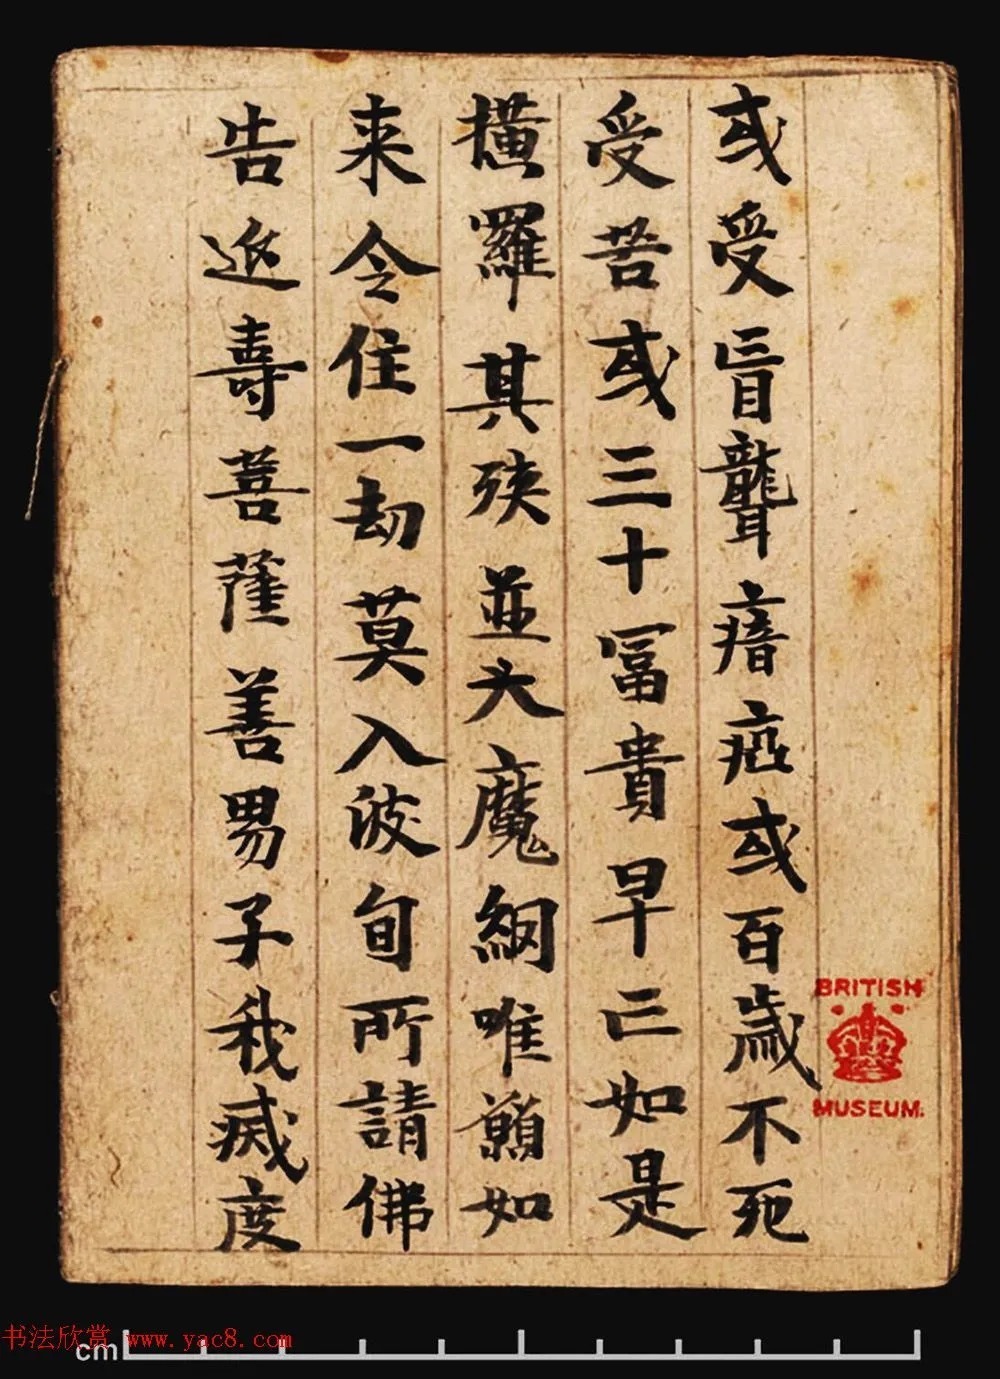 或受盲聾瘖瘂或百歲不死
受苦或三十冨貴早亡如是
撗羅其殃並头魔網唯願如
来令住一劫莫入波旬所請佛
告延壽菩薩善男子我滅度
BRITISH
MUSEUM.
书法欣赏 www.yac8.com
cm